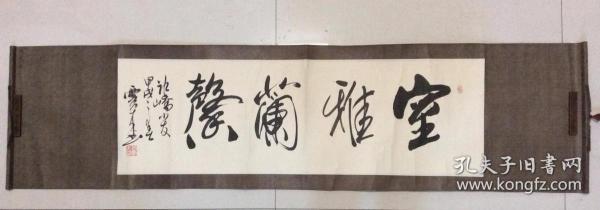 室雅蘭馨
甲戌之
孔夫子旧书网
www.kongfz.com